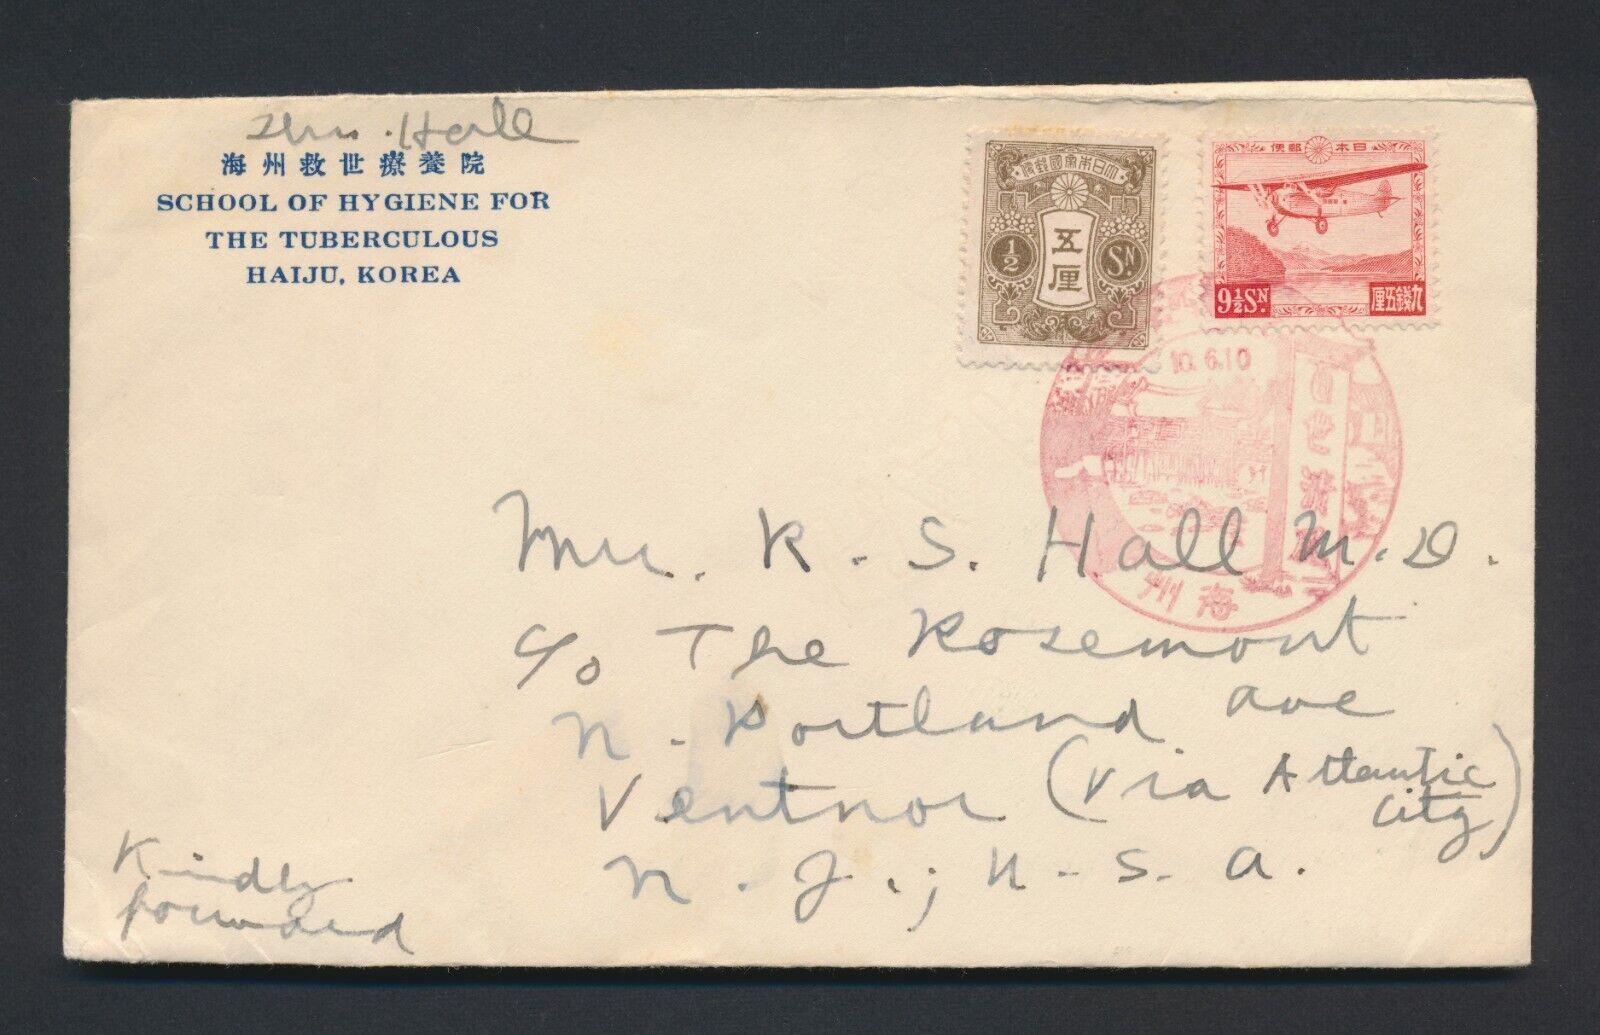 Hall
海州救世療養院
SCHOOL OF HYGIENE FOR
THE TUBERCULOUS
HAIJU, KOREA
大日本帝國郵便
½ 五厘 SN.
日本郵便
9½SN. 九錢五厘
10.6.10
海州
Mrs. R. S. Hall M.D.
c/o The Rosemont
N. Portland Ave
Ventnor (Via Atlantic
City)
N. J., U. S. A.
Kindly
forward